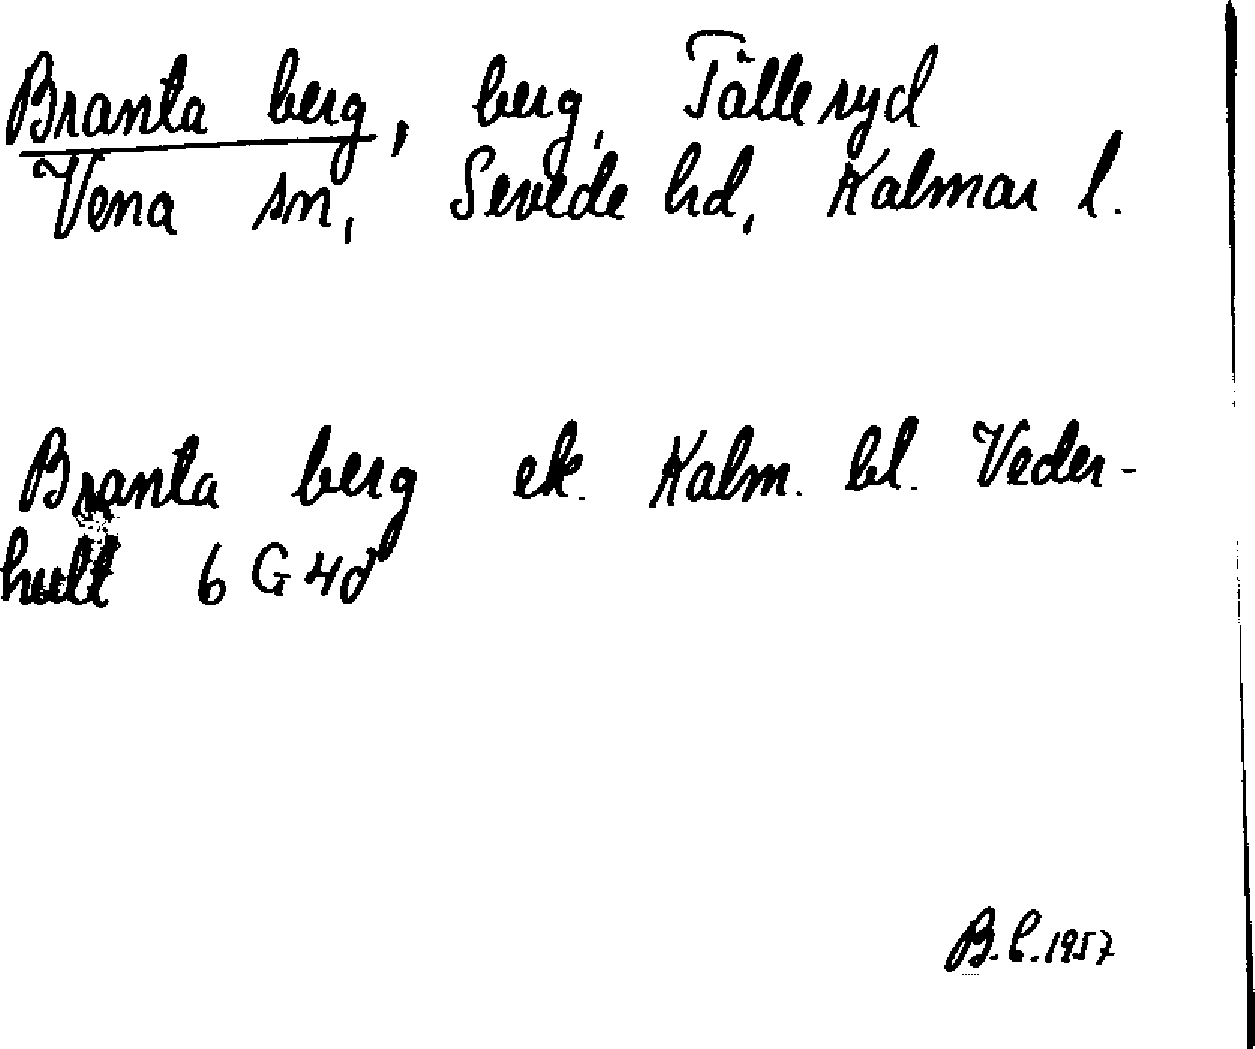 Branta berg, berg, Tälleryd
Vena sn, Sevede hd, Kalmar l.
Branta berg ek. Kalm. bl. Veder-
hult 6 G 4d
B.C. 1957